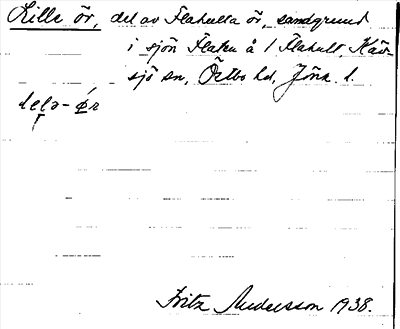 Lille ör, del av Flahulta ör, sandgrund
i sjön Flaten å 1 Flahult, Käv-
sjö sn, Östbo hd, Jönk. l.
Fritz Andersson 1938.